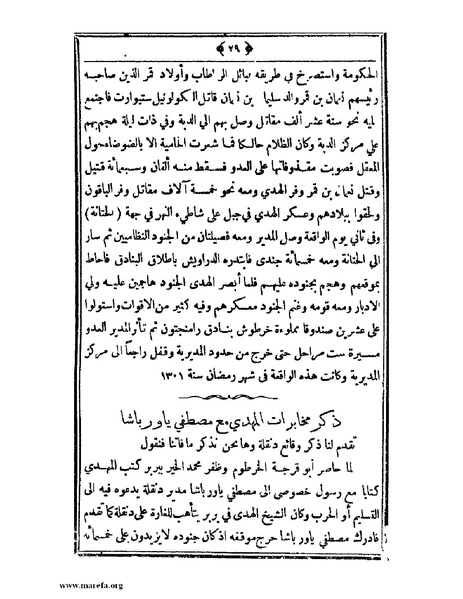 ﴿ ٢٩ ﴾
الحكومة واستصرخ في طريقه قبائل الرباطاب وأولاد قمر الذين صاحبه
رئيسهم نعمان بن قمر والد سليمان بن نعمان قاتل الكولونيل ستيوارت فاجتمع
اليه نحو ستة عشر ألف مقاتل وصل بهم الي الدبة وفي ذات ليلة هجم بهم
علي مركز الدبة وكان الظلام حالكا فما شعرت الحامية الا بالضوضاء حول
المعقل فصوبت مقذوفاتها علي العدو فسقط منه ألفان وسبعمائة قتيل
وقتل نعمان بن قمر وفر الهدي ومعه نحو خمسة آلاف مقاتل وفر الباقون
ولحقوا ببلادهم وعسكر الهدي في جبل علي شاطيء النهر في جهة (الحتانة)
وفي ثاني يوم الواقعة وصل المدير ومعه فصيلتان من الجنود النظاميين ثم سار
الي الحتانة ومعه خمسمائة جندى فابتدره الدراويش باطلاق البنادق فاحاط
بموقعهم وهجم بجنوده عليهم فلما أبصر الهدى الجنود هاجمين عليه ولي
الادبار ومعه قومه وغنم الجنود معسكرهم وفيه كثير من الاقوات واستولوا
على عشرين صندوقا مملوءة خرطوش بنادق رامنجتون ثم تأثر المدير العدو
مسيرة ست مراحل حتى خرج من حدود المديرية وقفل راجعاً الى مركز
المديرية وكانت هذه الواقعة في شهر رمضان سنة ١٣٠١
ذكر مخابرات المهدي مع مصطفي ياور باشا
تقدم لنا ذكر وقائع دنقلة وها نحن نذكر ما فاتنا فنقول
لما حاصر أبو قرجة الخرطوم وظفر محمد الخير ببربر كتب المهدي
كتابا مع رسول خصوصى الى مصطفي ياور باشا مدير دنقلة يدعوه فيه الى
التسليم أو الحرب وكان الشيخ الهدى في بربر يتأهب للغارة على دنقلة كما تقدم
فادرك مصطفي ياور باشا حرج موقفه اذ كان جنوده لا يزيدون على خمسمائة
www.marefa.org